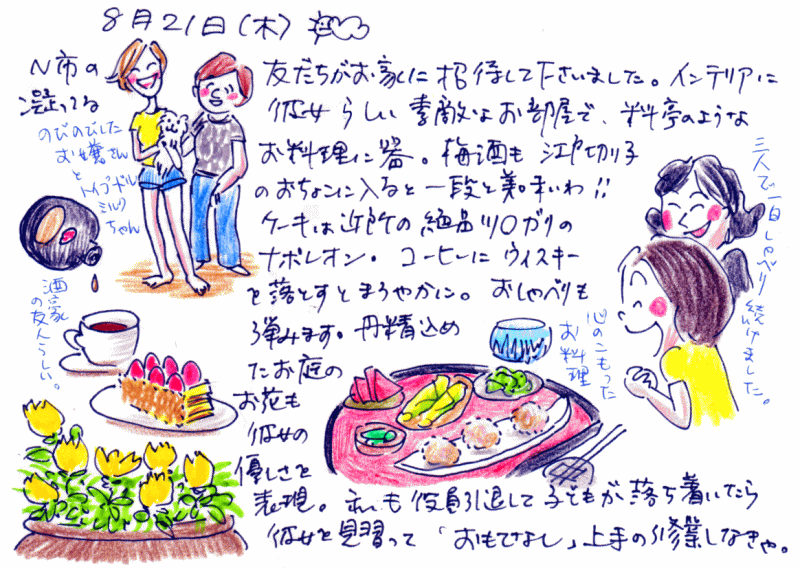 8月21日(木)
N市の
凝ってる
のびのびした
お嬢さん
と
トイプードル
ミルク
ちゃん
友だちがお家に招待して下さいました。インテリアに
彼女らしい素敵なお部屋で、料亭のような
お料理に器。梅酒も江戸切り子
のおちょこに入ると一段と美味いわ!!
ケーキは近所の絶品ツロガリの
ナポレオン。コーヒーにウィスキー
を落とすとまろやかに。おしゃべりも
弾みます。丹精込め
たお庭の
お花も
彼女の
優しさを
表現。私も役員引退して子どもが落ち着いたら
彼女を見習って「おもてなし」上手の修業しなきゃ。
酒豪
の友人らしい。
心のこもった
お料理
三人で一日しゃべり続けました。